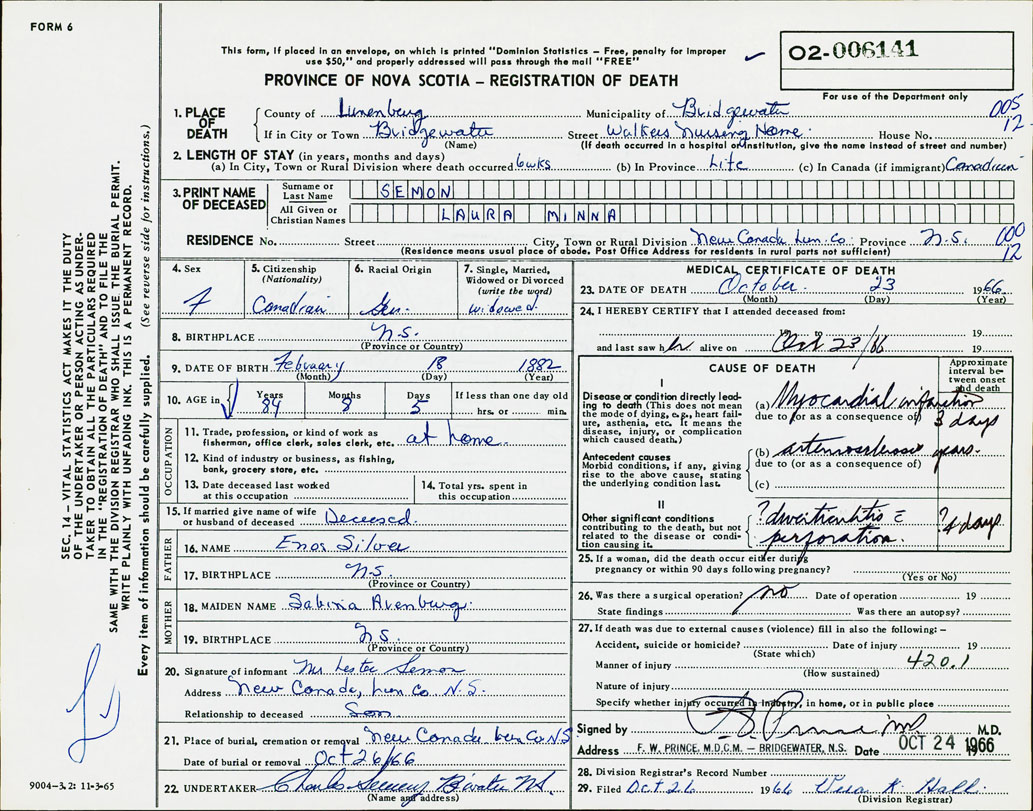 FORM 6
This form, if placed in an envelope, on which is printed "Dominion Statistics – Free, penalty for improper
use $50," and properly addressed will pass through the mail "FREE"
02-006141
For use of the Department only
PROVINCE OF NOVA SCOTIA – REGISTRATION OF DEATH
005
12
1. PLACE OF DEATH
County of Lunenburg Municipality of Bridgewater
If in City or Town Bridgewater Street Walkers Nursing Home House No.
(Name) (If death occurred in a hospital or institution, give the name instead of street and number)
2. LENGTH OF STAY (in years, months and days)
(a) In City, Town or Rural Division where death occurred 6 wks (b) In Province Life (c) In Canada (if immigrant) Canadian
3. PRINT NAME OF DECEASED
Surname or Last Name SEMON
All Given or Christian Names LAURA MINNA
RESIDENCE No. Street City, Town or Rural Division New Canada Lun. Co. Province N.S.
(Residence means usual place of abode. Post Office Address for residents in rural parts not sufficient)
000
12
4. Sex F
5. Citizenship (Nationality) Canadian
6. Racial Origin Ger.
7. Single, Married, Widowed or Divorced (write the word) widowed
8. BIRTHPLACE N.S.
(Province or Country)
9. DATE OF BIRTH February 18 1882
(Month) (Day) (Year)
10. AGE in Years 84 Months 8 Days 5 If less than one day old hrs. or min.
OCCUPATION
11. Trade, profession, or kind of work as fisherman, office clerk, sales clerk, etc. at home
12. Kind of industry or business, as fishing, bank, grocery store, etc.
13. Date deceased last worked at this occupation
14. Total yrs. spent in this occupation
15. If married give name of wife or husband of deceased Deceased
FATHER
16. NAME Enos Silver
17. BIRTHPLACE N.S.
(Province or Country)
MOTHER
18. MAIDEN NAME Sabina Arenburg
19. BIRTHPLACE N.S.
(Province or Country)
20. Signature of informant Mr Lester Semon
Address New Canada, Lun Co. N.S.
Relationship to deceased Son
21. Place of burial, cremation or removal New Canada Lun Co N.S
Date of burial or removal Oct 26/66
22. UNDERTAKER Charles B'water N.S.
(Name and address)
MEDICAL CERTIFICATE OF DEATH
23. DATE OF DEATH October 23 1966
(Month) (Day) (Year)
24. I HEREBY CERTIFY that I attended deceased from:
19
and last saw her alive on Oct 23/66 19
CAUSE OF DEATH
Approximate interval between onset and death
I
Disease or condition directly leading to death (This does not mean the mode of dying, e.g., heart failure, asthenia, etc. It means the disease, injury, or complication which caused death.)
(a) Myocardial infarction 3 days
due to (or as a consequence of)
Antecedent causes
Morbid conditions, if any, giving rise to the above cause, stating the underlying condition last.
(b) arteriosclerosis years.
due to (or as a consequence of)
(c)
II
Other significant conditions contributing to the death, but not related to the disease or condition causing it.
? diverticulitis c̄ perforation. ? 4 days
25. If a woman, did the death occur either during pregnancy or within 90 days following pregnancy?
(Yes or No)
26. Was there a surgical operation? no Date of operation 19
State findings Was there an autopsy?
27. If death was due to external causes (violence) fill in also the following: –
Accident, suicide or homicide? Date of injury 19
(State which)
Manner of injury 420.1
(How sustained)
Nature of injury
Specify whether injury occurred in industry, in home, or in public place
Signed by F. W. Prince MD M.D.
Address F. W. PRINCE, M.D.C.M. – BRIDGEWATER, N.S. Date OCT 24 1966
28. Division Registrar's Record Number
29. Filed Oct 26 1966 K. Hall
(Division Registrar)
SEC. 14 – VITAL STATISTICS ACT MAKES IT THE DUTY
OF THE UNDERTAKER OR PERSON ACTING AS UNDER-
TAKER TO OBTAIN ALL THE PARTICULARS REQUIRED
IN THE "REGISTRATION OF DEATH" AND TO FILE THE
SAME WITH THE DIVISION REGISTRAR WHO SHALL ISSUE THE BURIAL PERMIT.
WRITE PLAINLY WITH UNFADING INK. THIS IS A PERMANENT RECORD.
Every item of information should be carefully supplied. (See reverse side for instructions.)
9004-3.2: 11-3-65